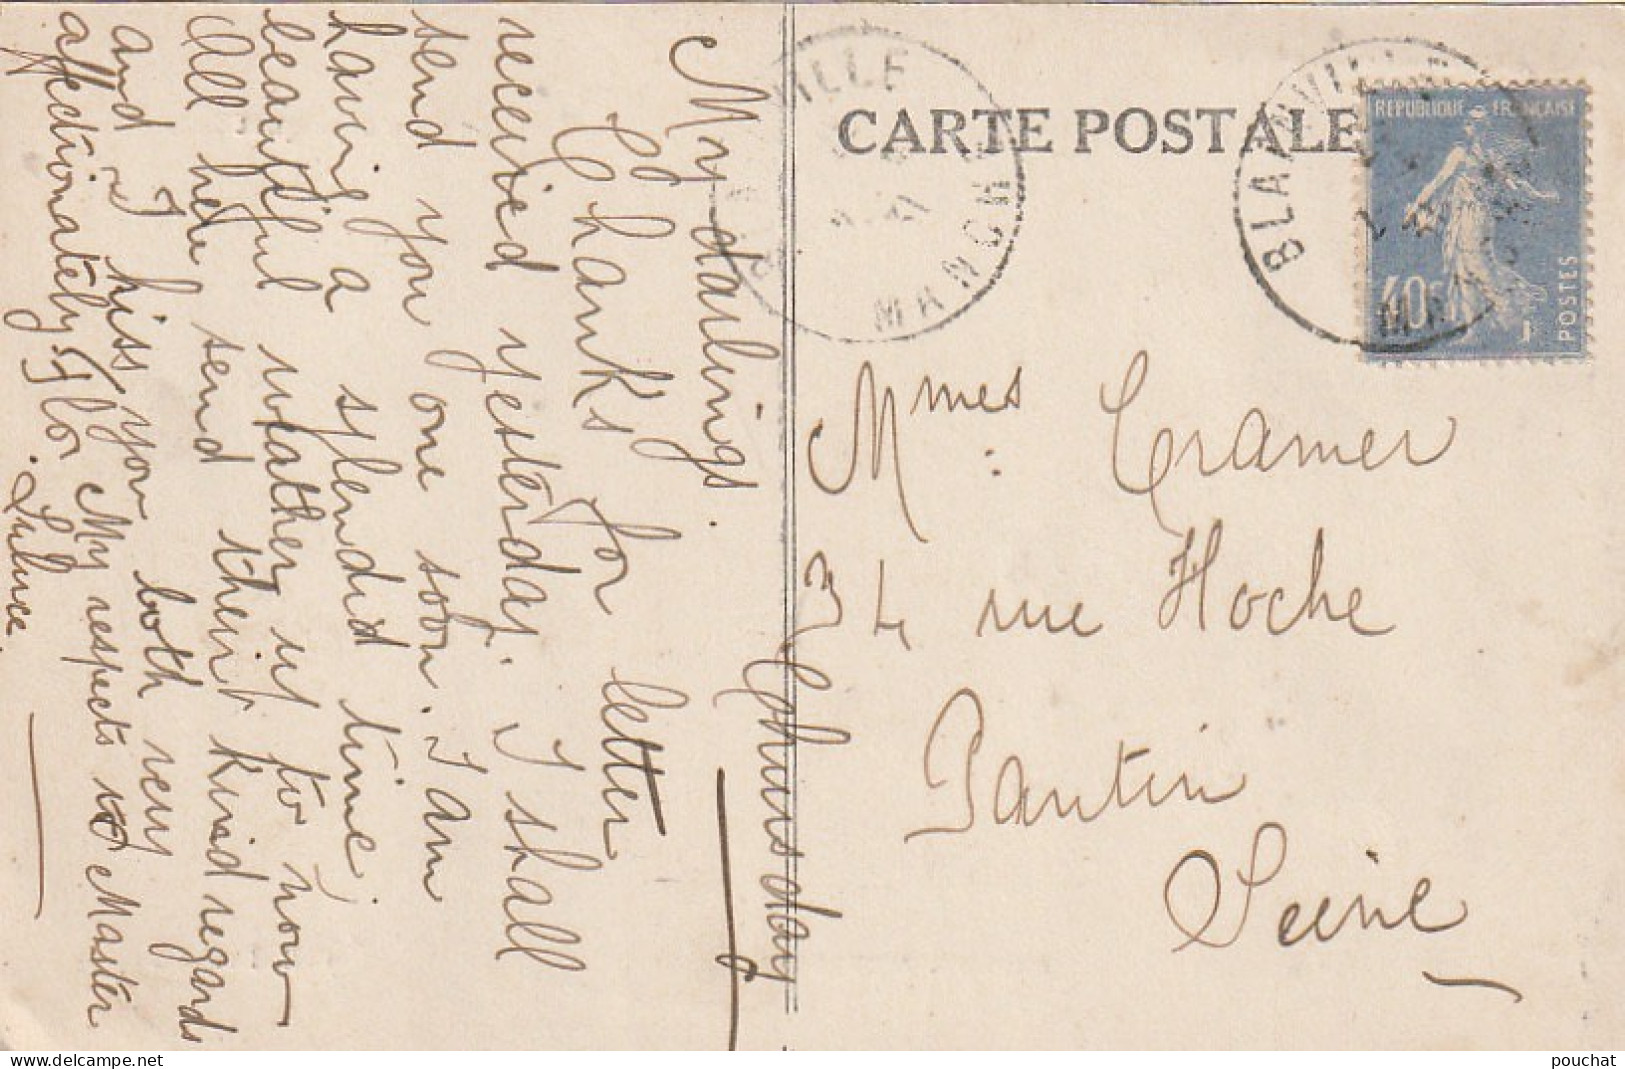 CARTE POSTALE
REPUBLIQUE FRANÇAISE
40c
POSTES
BLAINVILLE
MANCHE
VILLE
MANCHE
Thursday
My darlings.
Thanks for letter
received yesterday. I shall
send you one soon. I am
having a splendid time
beautiful weather up to now
All here send their kind regards
and I kiss you both very
affectionately. My respects to Master
Luluce.
Mmes Cramer
34 rue Hoche
Pantin
Seine
delcampe.net
pouchat